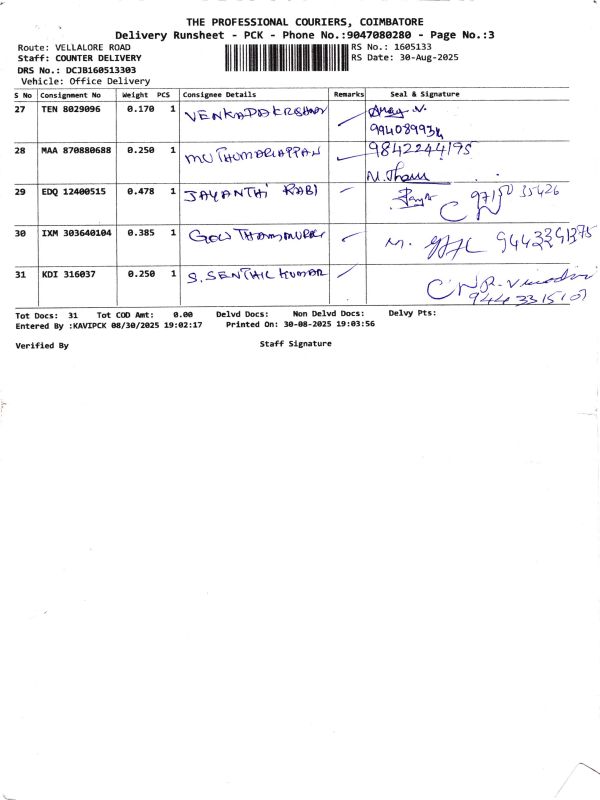 THE PROFESSIONAL COURIERS, COIMBATORE
Delivery Runsheet - PCK - Phone No.:9047080280 - Page No.:3
Route: VELLALORE ROAD RS No.: 1605133
Staff: COUNTER DELIVERY RS Date: 30-Aug-2025
DRS No.: DCJB160513303
Vehicle: Office Delivery
S No Consignment No Weight PCS Consignee Details Remarks Seal & Signature
27 TEN 8029096 0.170 1
28 MAA 870880688 0.250 1 MUTHUMARIAPPAN 9842244195
29 EDQ 12400515 0.478 1 JAYANTHI RABI 97150 35426
30 IXM 303640104 0.385 1 M.
31 KDI 316037 0.250 1 S. SENTHIL KUMAR
Tot Docs: 31 Tot COD Amt: 0.00 Delvd Docs: Non Delvd Docs: Delvy Pts:
Entered By :KAVIPCK 08/30/2025 19:02:17 Printed On: 30-08-2025 19:03:56
Verified By Staff Signature